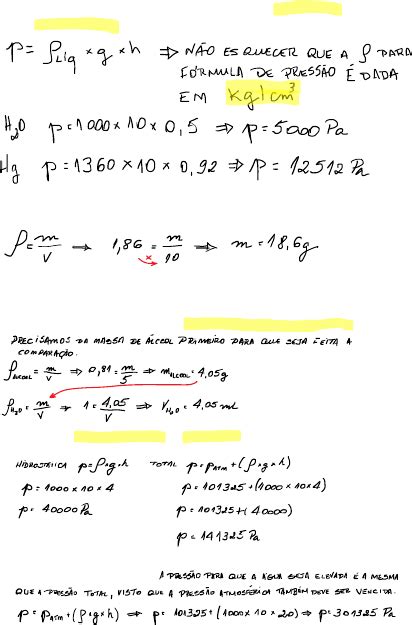 p = ρLiq × g × h ⇒ NÃO ESQUECER QUE A ρ PARA
FÓRMULA DE PRESSÃO É DADA
EM kg/cm³
H₂O p = 1000 × 10 × 0,5 ⇒ p = 5000 Pa
Hg p = 1360 × 10 × 0,92 ⇒ p = 12512 Pa
ρ = m/v → 1,86 = m/10 ⇒ m = 18,6g
PRECISAMOS DA MASSA DE ÁLCOOL PRIMEIRO PARA QUE SEJA FEITA A
COMPARAÇÃO.
ρÁLCOOL = m/v ⇒ 0,81 = m/5 ⇒ mÁLCOOL = 4,05g
ρH₂O = m/v ⇒ 1 = 4,05/V ⇒ VH₂O = 4,05 mL
HIDROSTÁTICA p = ρ·g·h TOTAL p = pATM + (ρ·g·h)
p = 1000 × 10 × 4 p = 101325 + (1000 × 10 × 4)
p = 40000 Pa p = 101325 + (40000)
p = 141325 Pa
A PRESSÃO PARA QUE A ÁGUA SEJA ELEVADA É A MESMA
QUE A PRESSÃO TOTAL, VISTO QUE A PRESSÃO ATMOSFÉRICA TAMBÉM DEVE SER VENCIDA.
p = pATM + (ρ·g·h) ⇒ p = 101325 + (1000 × 10 × 20) ⇒ p = 301325 Pa